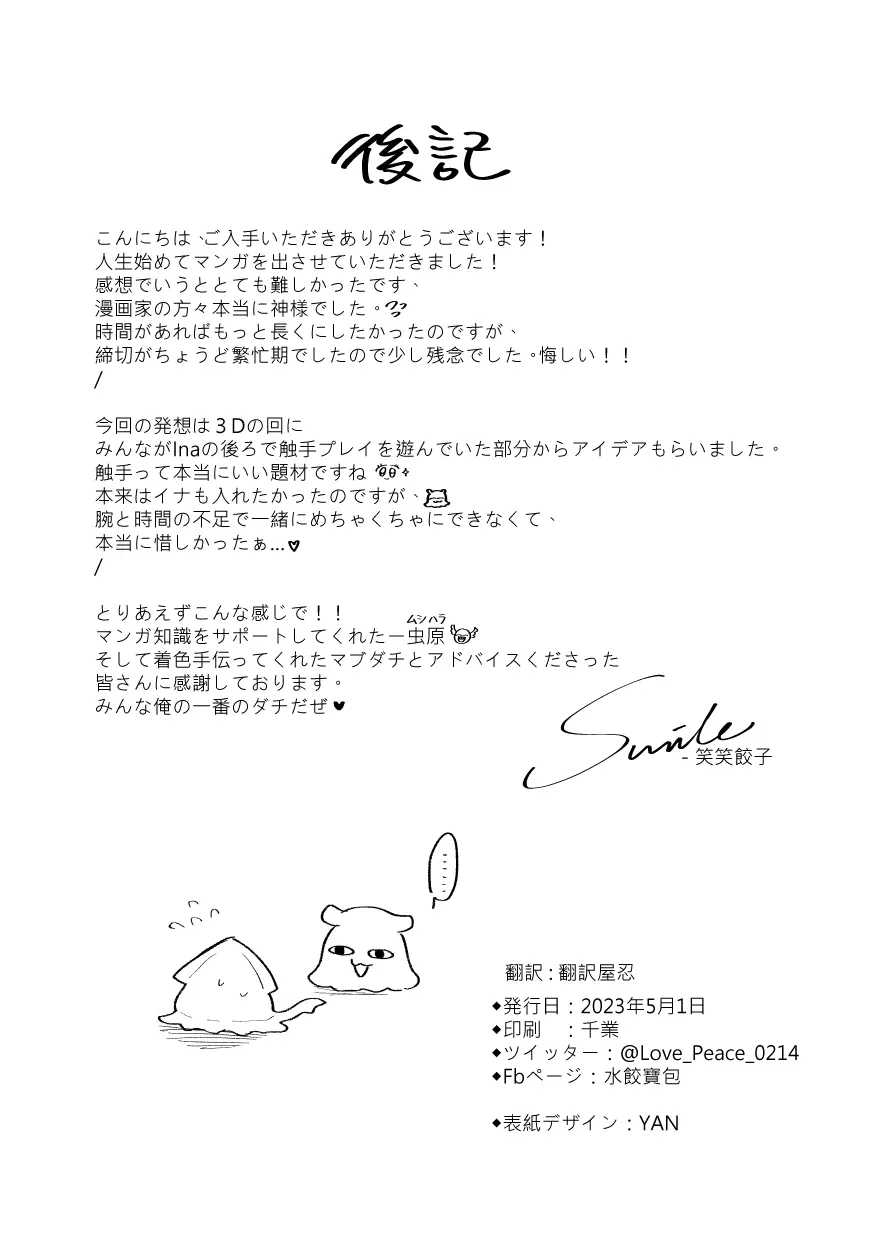 後記
こんにちは、ご入手いただきありがとうございます！
人生始めてマンガを出させていただきました！
感想でいうととても難しかったです、
漫画家の方々本当に神様でした。
時間があればもっと長くにしたかったのですが、
締切がちょうど繁忙期でしたので少し残念でした。悔しい！！
/
今回の発想は３Dの回に
みんながInaの後ろで触手プレイを遊んでいた部分からアイデアもらいました。
触手って本当にいい題材ですね
本来はイナも入れたかったのですが、
腕と時間の不足で一緒にめちゃくちゃにできなくて、
本当に惜しかったぁ...♥
/
とりあえずこんな感じで！！
ムシハラ
マンガ知識をサポートしてくれたー虫原
そして着色手伝ってくれたマブダチとアドバイスくださった
皆さんに感謝しております。
みんな俺の一番のダチだぜ♥
Smile
- 笑笑餃子
……
翻訳：翻訳屋忍
◆発行日：2023年5月1日
◆印刷　：千業
◆ツイッター：@Love_Peace_0214
◆Fbページ：水餃寶包
◆表紙デザイン：YAN